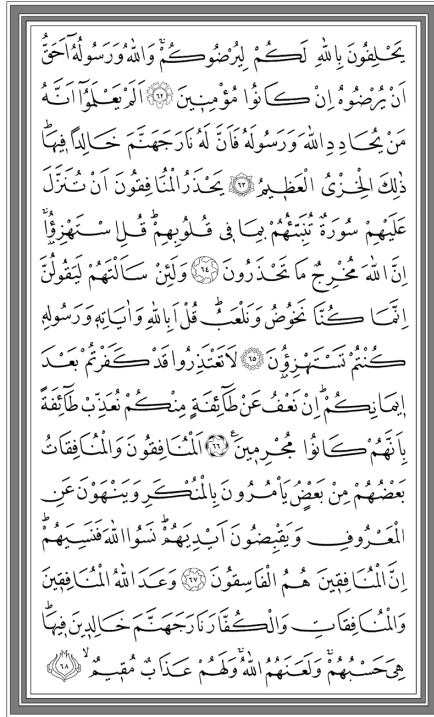 يَحْلِفُونَ بِاللّٰهِ لَكُمْ لِيُرْضُوكُمْۚ وَاللّٰهُ وَرَسُولُهُٓ اَحَقُّ
اَنْ يُرْضُوهُ اِنْ كَانُوا مُؤْمِن۪ينَ ﴿٦٢﴾ اَلَمْ يَعْلَمُٓوا اَنَّهُ
مَنْ يُحَادِدِ اللّٰهَ وَرَسُولَهُ فَاَنَّ لَهُ نَارَ جَهَنَّمَ خَالِدًا ف۪يهَاۜ
ذٰلِكَ الْخِزْيُ الْعَظ۪يمُ ﴿٦٣﴾ يَحْذَرُ الْمُنَافِقُونَ اَنْ تُنَزَّلَ
عَلَيْهِمْ سُورَةٌ تُنَبِّئُهُمْ بِمَا ف۪ي قُلُوبِهِمْۜ قُلِ اسْتَهْزِؤُ۫اۚ
اِنَّ اللّٰهَ مُخْرِجٌ مَا تَحْذَرُونَ ﴿٦٤﴾ وَلَئِنْ سَاَلْتَهُمْ لَيَقُولُنَّ
اِنَّمَا كُنَّا نَخُوضُ وَنَلْعَبُۜ قُلْ اَبِاللّٰهِ وَاٰيَاتِه۪ وَرَسُولِه۪
كُنْتُمْ تَسْتَهْزِؤُ۫نَ ﴿٦٥﴾ لَا تَعْتَذِرُوا قَدْ كَفَرْتُمْ بَعْدَ
ا۪يمَانِكُمْۜ اِنْ نَعْفُ عَنْ طَٓائِفَةٍ مِنْكُمْ نُعَذِّبْ طَٓائِفَةً
بِاَنَّهُمْ كَانُوا مُجْرِم۪ينَ۟ ﴿٦٦﴾ اَلْمُنَافِقُونَ وَالْمُنَافِقَاتُ
بَعْضُهُمْ مِنْ بَعْضٍۢ يَاْمُرُونَ بِالْمُنْكَرِ وَيَنْهَوْنَ عَنِ
الْمَعْرُوفِ وَيَقْبِضُونَ اَيْدِيَهُمْۜ نَسُوا اللّٰهَ فَنَسِيَهُمْۜ
اِنَّ الْمُنَافِق۪ينَ هُمُ الْفَاسِقُونَ ﴿٦٧﴾ وَعَدَ اللّٰهُ الْمُنَافِق۪ينَ
وَالْمُنَافِقَاتِ وَالْكُفَّارَ نَارَ جَهَنَّمَ خَالِد۪ينَ ف۪يهَاۜ
هِيَ حَسْبُهُمْۚ وَلَعَنَهُمُ اللّٰهُۚ وَلَهُمْ عَذَابٌ مُق۪يمٌۙ ﴿٦٨﴾